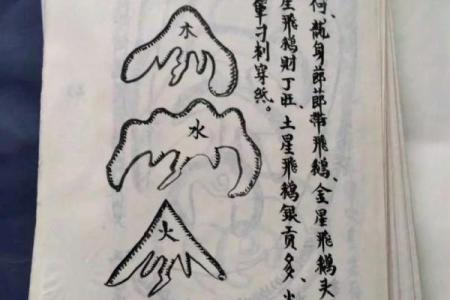 何、龍身節節帶飛鵝、金星飛鵝头
星飛鵝財丁旺、土星飛鵝銀貢多、火
刁刺穿紙。
木
水
火